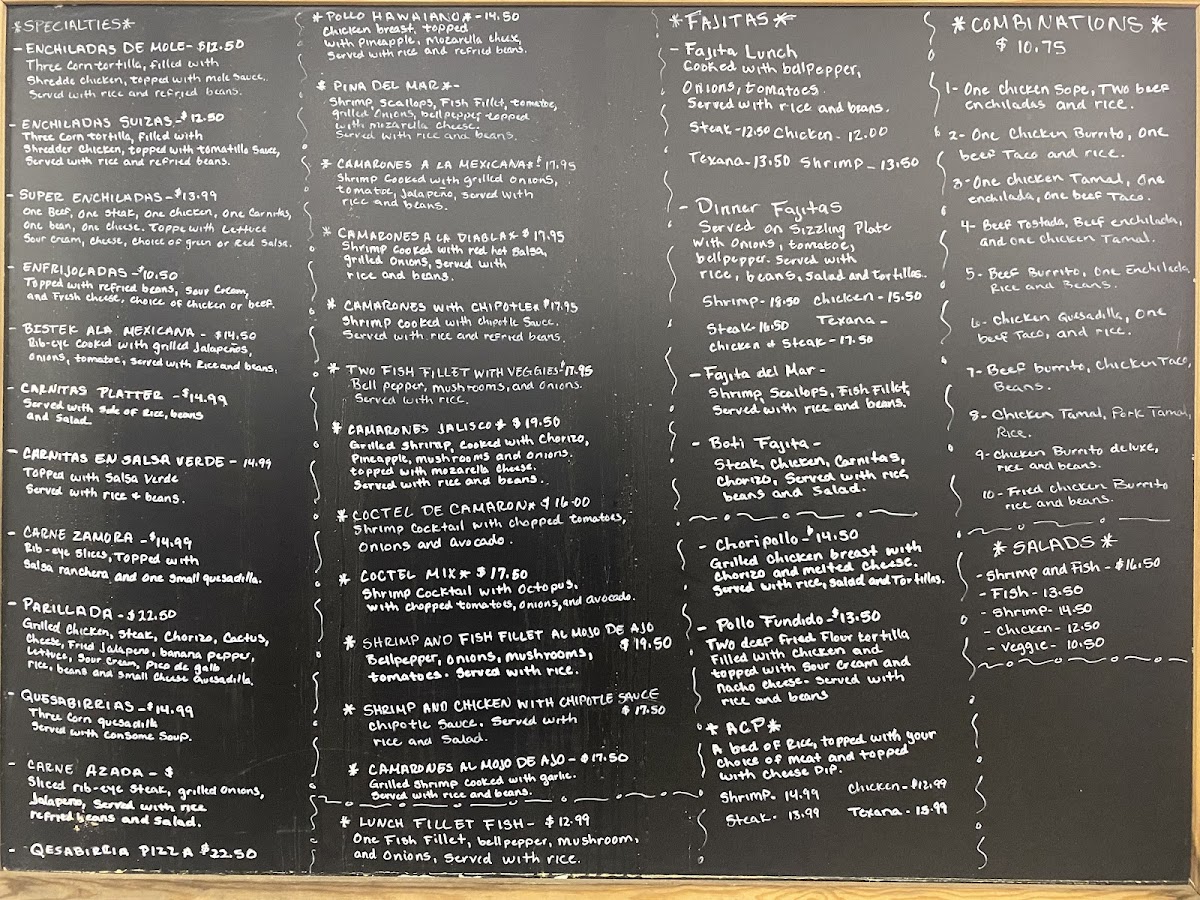 *SPECIALTIES*
- ENCHILADAS DE MOLE- $12.50
Three corn tortilla, filled with
Shredde chicken, topped with mole Sauce.
Served with rice and refried beans.
- ENCHILADAS SUIZAS- $12.50
Three corn tortilla, filled with
Shredder chicken, topped with tomatillo Sauce,
Served with rice and refried beans.
- SUPER ENCHILADAS- $13.99
One Beef, One steak, One chicken, One Carnitas,
One bean, One cheese. Toppe with Lettuce
Sour cream, cheese, choice of green or Red Salsa.
- ENFRIJOLADAS - $10.50
Topped with refried beans, Sour Cream,
and Fresh cheese, choice of chicken or beef.
- BISTEK ALA MEXICANA - $14.50
Rib-eye cooked with grilled Jalapeños,
Onions, tomatoe, Served with Rice and beans.
- CARNITAS PLATTER - $14.99
Served with side of Rice, beans
and Salad.
- CARNITAS EN SALSA VERDE - 14.99
Topped with Salsa Verde
Served with rice & beans.
- CARNE ZAMORA - $14.99
Rib-eye Slices, Topped with
Salsa ranchera and one small quesadilla.
- PARILLADA - $22.50
Grilled Chicken, Steak, Chorizo, Cactus,
Cheese, Fried Jalapeno, banana Pepper,
Lettuce, Sour Cream, Pico de gallo
rice, beans and small Cheese Quesadilla.
- QUESABIRRIAS - $14.99
Three corn quesadilla
Served with Consome Soup.
- CARNE AZADA - $
Sliced rib-eye steak, grilled Onions,
Jalapeño, Served with rice
refried beans and Salad.
- QESABIRRIA PIZZA $22.50
* POLLO HAWAIANO * - 14.50
Chicken breast, topped
with Pineapple, mozarella cheese,
Served with rice and refried beans.
* PINA DEL MAR * -
Shrimp, Scallops, Fish Fillet, tomatoe,
grilled Onions, bellpepper topped
with mozarella Cheese.
Served with rice and beans.
* CAMARONES A LA MEXICANA * $17.95
Shrimp Cooked with grilled Onions,
tomatoe, Jalapeño, Served with
rice and beans.
* CAMARONES A LA DIABLA * $17.95
Shrimp cooked with red hot Salsa,
grilled Onions, Served with
rice and beans.
* CAMARONES with CHIPOTLE * $17.95
Shrimp cooked with chipotle Sauce.
Served with rice and refried beans.
* TWO FISH FILLET WITH VEGGIES $17.95
Bell pepper, mushrooms, and onions.
Served with rice.
* CAMARONES JALISCO * $19.50
Grilled Shrimp, Cooked with Chorizo,
Pineapple, mushrooms and onions.
topped with mozarella Cheese.
Served with rice and beans..
* COCTEL DE CAMARON * $16.00
Shrimp Cocktail with chopped tomatoes,
Onions and avocado.
* COCTEL MIX * $17.50
Shrimp Cocktail with Octopus,
with chopped tomatoes, Onions, and avocado.
* SHRIMP AND FISH FILLET AL MOJO DE AJO
$19.50
Bellpepper, Onions, mushrooms,
tomatoes. Served with rice.
* SHRIMP AND CHICKEN WITH CHIPOTLE SAUCE
$17.50
chipotle Sauce. Served with
rice and Salad.
* CAMARONES AL MOJO DE AJO - $17.50
Grilled Shrimp Cooked with garlic.
Served with rice and beans.
* LUNCH FILLET FISH - $12.99
One Fish Fillet, bellpepper, mushroom,
and Onions, Served with rice.
*FAJITAS*
- Fajita Lunch
Cooked with bellpepper,
Onions, tomatoes.
Served with rice and beans.
Steak - 12.50 Chicken - 12.00
Texana - 13.50 Shrimp - 13.50
- Dinner Fajitas
Served on Sizzling Plate
With Onions, tomatoe,
bellpepper. Served with
rice, beans, Salad and tortillas.
Shrimp - 18.50 Chicken - 15.50
Steak - 16.50 Texana -
chicken & Steak - 17.50
- Fajita del Mar -
Shrimp, Scallops, Fish Fillet,
Served with rice and beans.
- Boti Fajita -
Steak, Chicken, Carnitas,
Chorizo, Served with rice,
beans and Salad.
- Choripollo - $14.50
Grilled Chicken breast with
Chorizo and melted Cheese.
Served with rice, salad and Tortillas.
- Pollo Fundido - $13.50
Two deep fried Flour tortilla
Filled with chicken and
topped with Sour Cream and
nacho cheese. Served with
rice and beans
*ACP*
A bed of Rice, topped with your
Choice of meat and topped
with Cheese Dip.
Shrimp - 14.99 Chicken - $12.99
Steak - 13.99 Texana - 15.99
*COMBINATIONS*
$10.75
1- One chicken Sope, Two beef
enchiladas and rice.
2- One Chicken Burrito, One
beef Taco and rice.
3- One chicken Tamal, One
enchilada, one beef Taco.
4- Beef Tostada, Beef enchilada,
and One chicken Tamal.
5- Beef Burrito, One Enchilada,
Rice and Beans.
6- Chicken Quesadilla, One
beef Taco, and rice.
7- Beef burrito, chicken Taco,
Beans.
8- Chicken Tamal, Pork Tamal,
Rice.
9- Chicken Burrito deluxe,
rice and beans.
10- Fried chicken Burrito
rice and beans.
*SALADS*
- Shrimp and Fish - $16.50
- Fish - 13.50
- Shrimp - 14.50
- Chicken - 12.50
- Veggie - 10.50